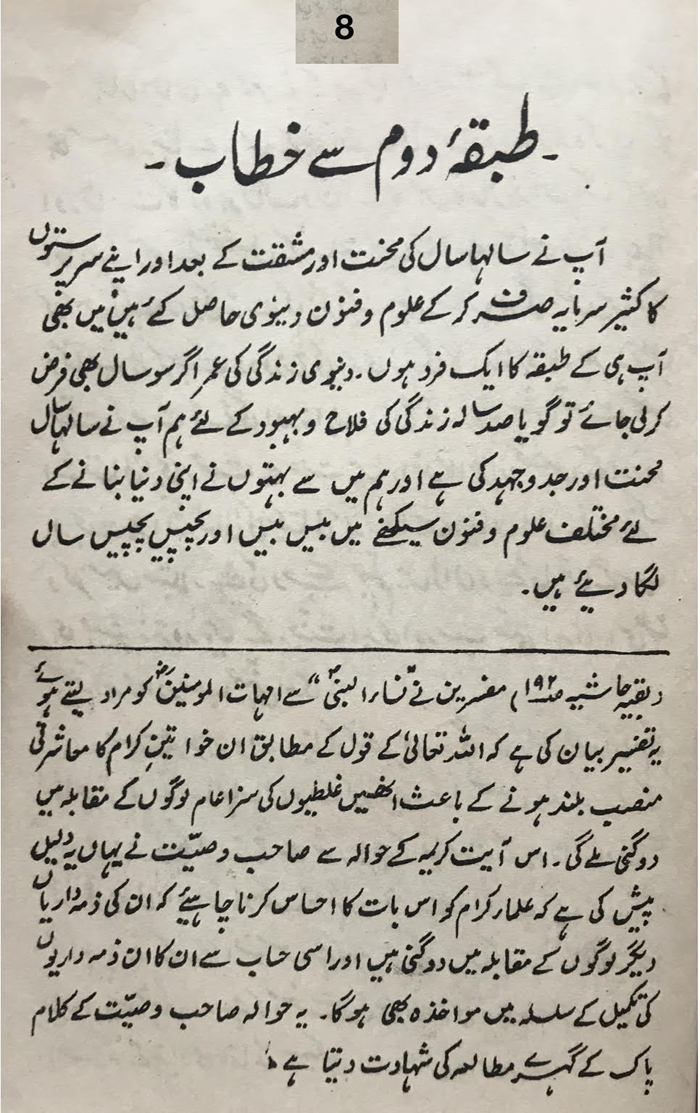 8
۔ طبقۂ دوم سے خطاب ۔
آپ نے سالہا سال کی محنت اور مشقت کے بعد اور اپنے سرپرستوں
کا کثیر سرمایہ صرف کر کے علوم و فنون دینوی حاصل کئے ہیں، میں بھی
آپ ہی کے طبقہ کا ایک فرد ہوں۔ دنیوی زندگی کی عمر اگر سو سال بھی فرض
کر لی جائے تو گویا صد سالہ زندگی کی فلاح و بہبود کے لئے ہم آپ نے سالہا سال
محنت اور جد و جہد کی ہے اور ہم میں سے بہتوں نے اپنی دنیا بنانے کے
لئے مختلف علوم و فنون سیکھنے میں بیس بیس اور پچیس پچیس سال
لگا دیئے ہیں۔
(بقیہ حاشیہ صـ۱۹۲) مفسرین نے "نساء النبیؐ" سے امہات المومنینؓ کو مراد لیتے ہوئے
یہ تفسیر بیان کی ہے کہ اللہ تعالیٰ کے قول کے مطابق ان خواتینِ کرام کا معاشرتی
منصب بلند ہونے کے باعث انھیں غلطیوں کی سزا عام لوگوں کے مقابلہ میں
دوگنی ملے گی۔ اس آیت کریمہ کے حوالہ سے صاحب وصیّت نے یہاں یہ دلیل
پیش کی ہے کہ علماء کرام کو اس بات کا احساس کرنا چاہیئے کہ ان کی ذمہ داریاں
دیگر لوگوں کے مقابلہ میں دوگنی ہیں اور اسی حساب سے ان کا ان ذمہ داریوں
کی تکمیل کے سلسلہ میں مواخذہ بھی ہوگا۔ یہ حوالہ صاحب وصیّت کے کلام
پاک کے گہرے مطالعہ کی شہادت دیتا ہے۔